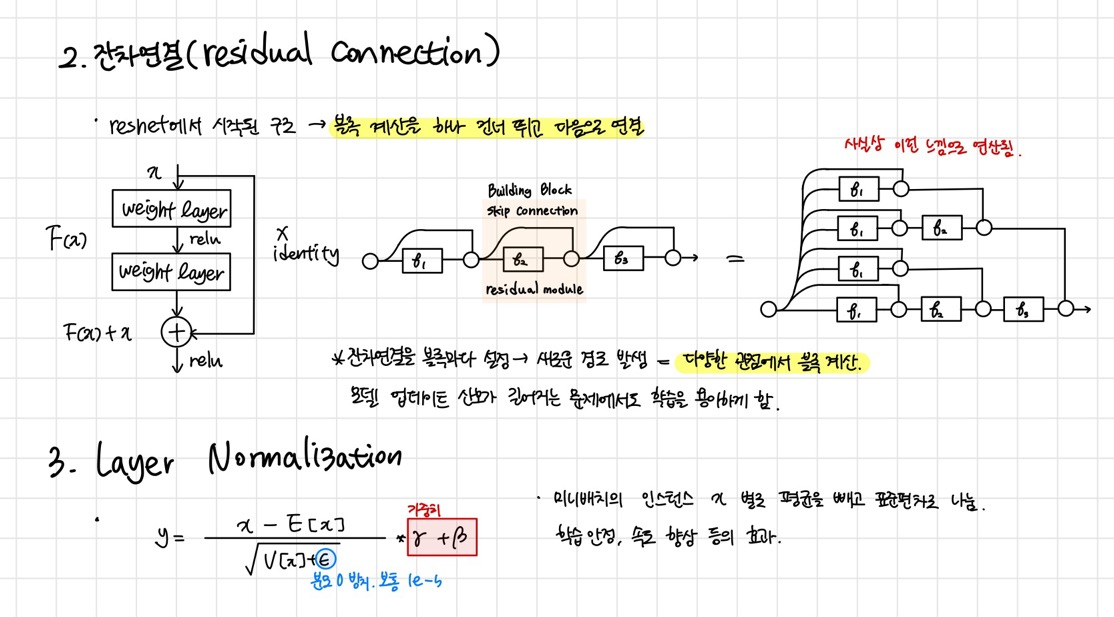 2. 잔차연결(residual connection)
· resnet에서 시작된 구조 → 블록 계산을 하나 건너 뛰고 다음으로 연결
사실상 이런 느낌으로 연산됨.
x
weight layer
relu
F(x)
weight layer
F(x)+x
+
relu
X
identity
Building Block
skip connection
f₁
f₂
f₃
residual module
=
f₁
f₁
f₂
f₁
f₁
f₂
f₃
*잔차연결을 블록마다 설정 → 새로운 경로 발생 = 다양한 관점에서 블록 계산.
모델 업데이트 신호가 길어지는 문제에서도 학습을 용이하게 함.
3. Layer Normalization
·
y = x - E[x] / √V[x]+ε * γ + β
가중치
분모 0 방지. 보통 1e-5
· 미니배치의 인스턴스 x 별로 평균을 빼고 표준편차로 나눔.
학습 안정, 속도 향상 등의 효과.